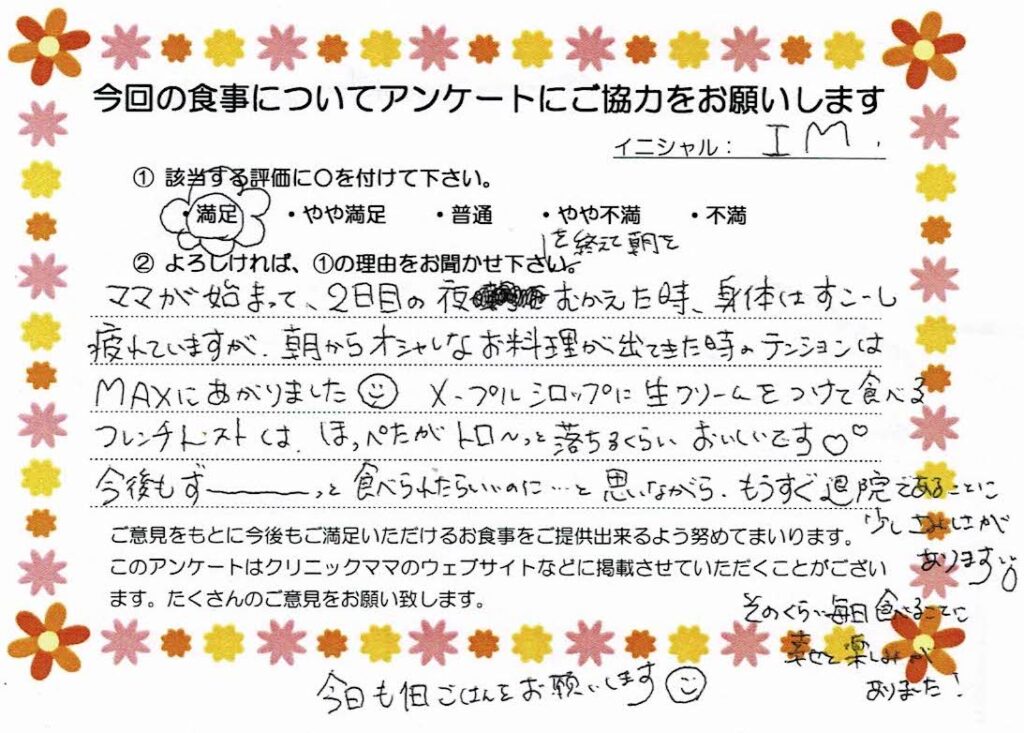 今回の食事についてアンケートにご協力をお願いします
イニシャル： I M.
① 該当する評価に〇を付けて下さい。
・満足 ・やや満足 ・普通 ・やや不満 ・不満
② よろしければ、①の理由をお聞かせ下さい。
を終えて朝を
ママが始まって、2日目の夜 むかえた時、身体はすこーし
疲れていますが、朝からオシャレなお料理が出てきた時のテンションは
MAXにあがりました☺ メープルシロップに生クリームをつけて食べる
フレンチトーストは、ほっぺたがトロ〜っと落ちるくらいおいしいです♡♡
今後もず———っと食べられたらいいのに…と思いながら、もうすぐ退院であることに
少しさみしさが
あります
ご意見をもとに今後もご満足いただけるお食事をご提供出来るよう努めてまいります。
このアンケートはクリニックママのウェブサイトなどに掲載させていただくことがござい
ます。たくさんのご意見をお願い致します。
そのくらい毎日食べることに
幸せと楽しみが
ありました！
今日も ごはんをお願いします☺